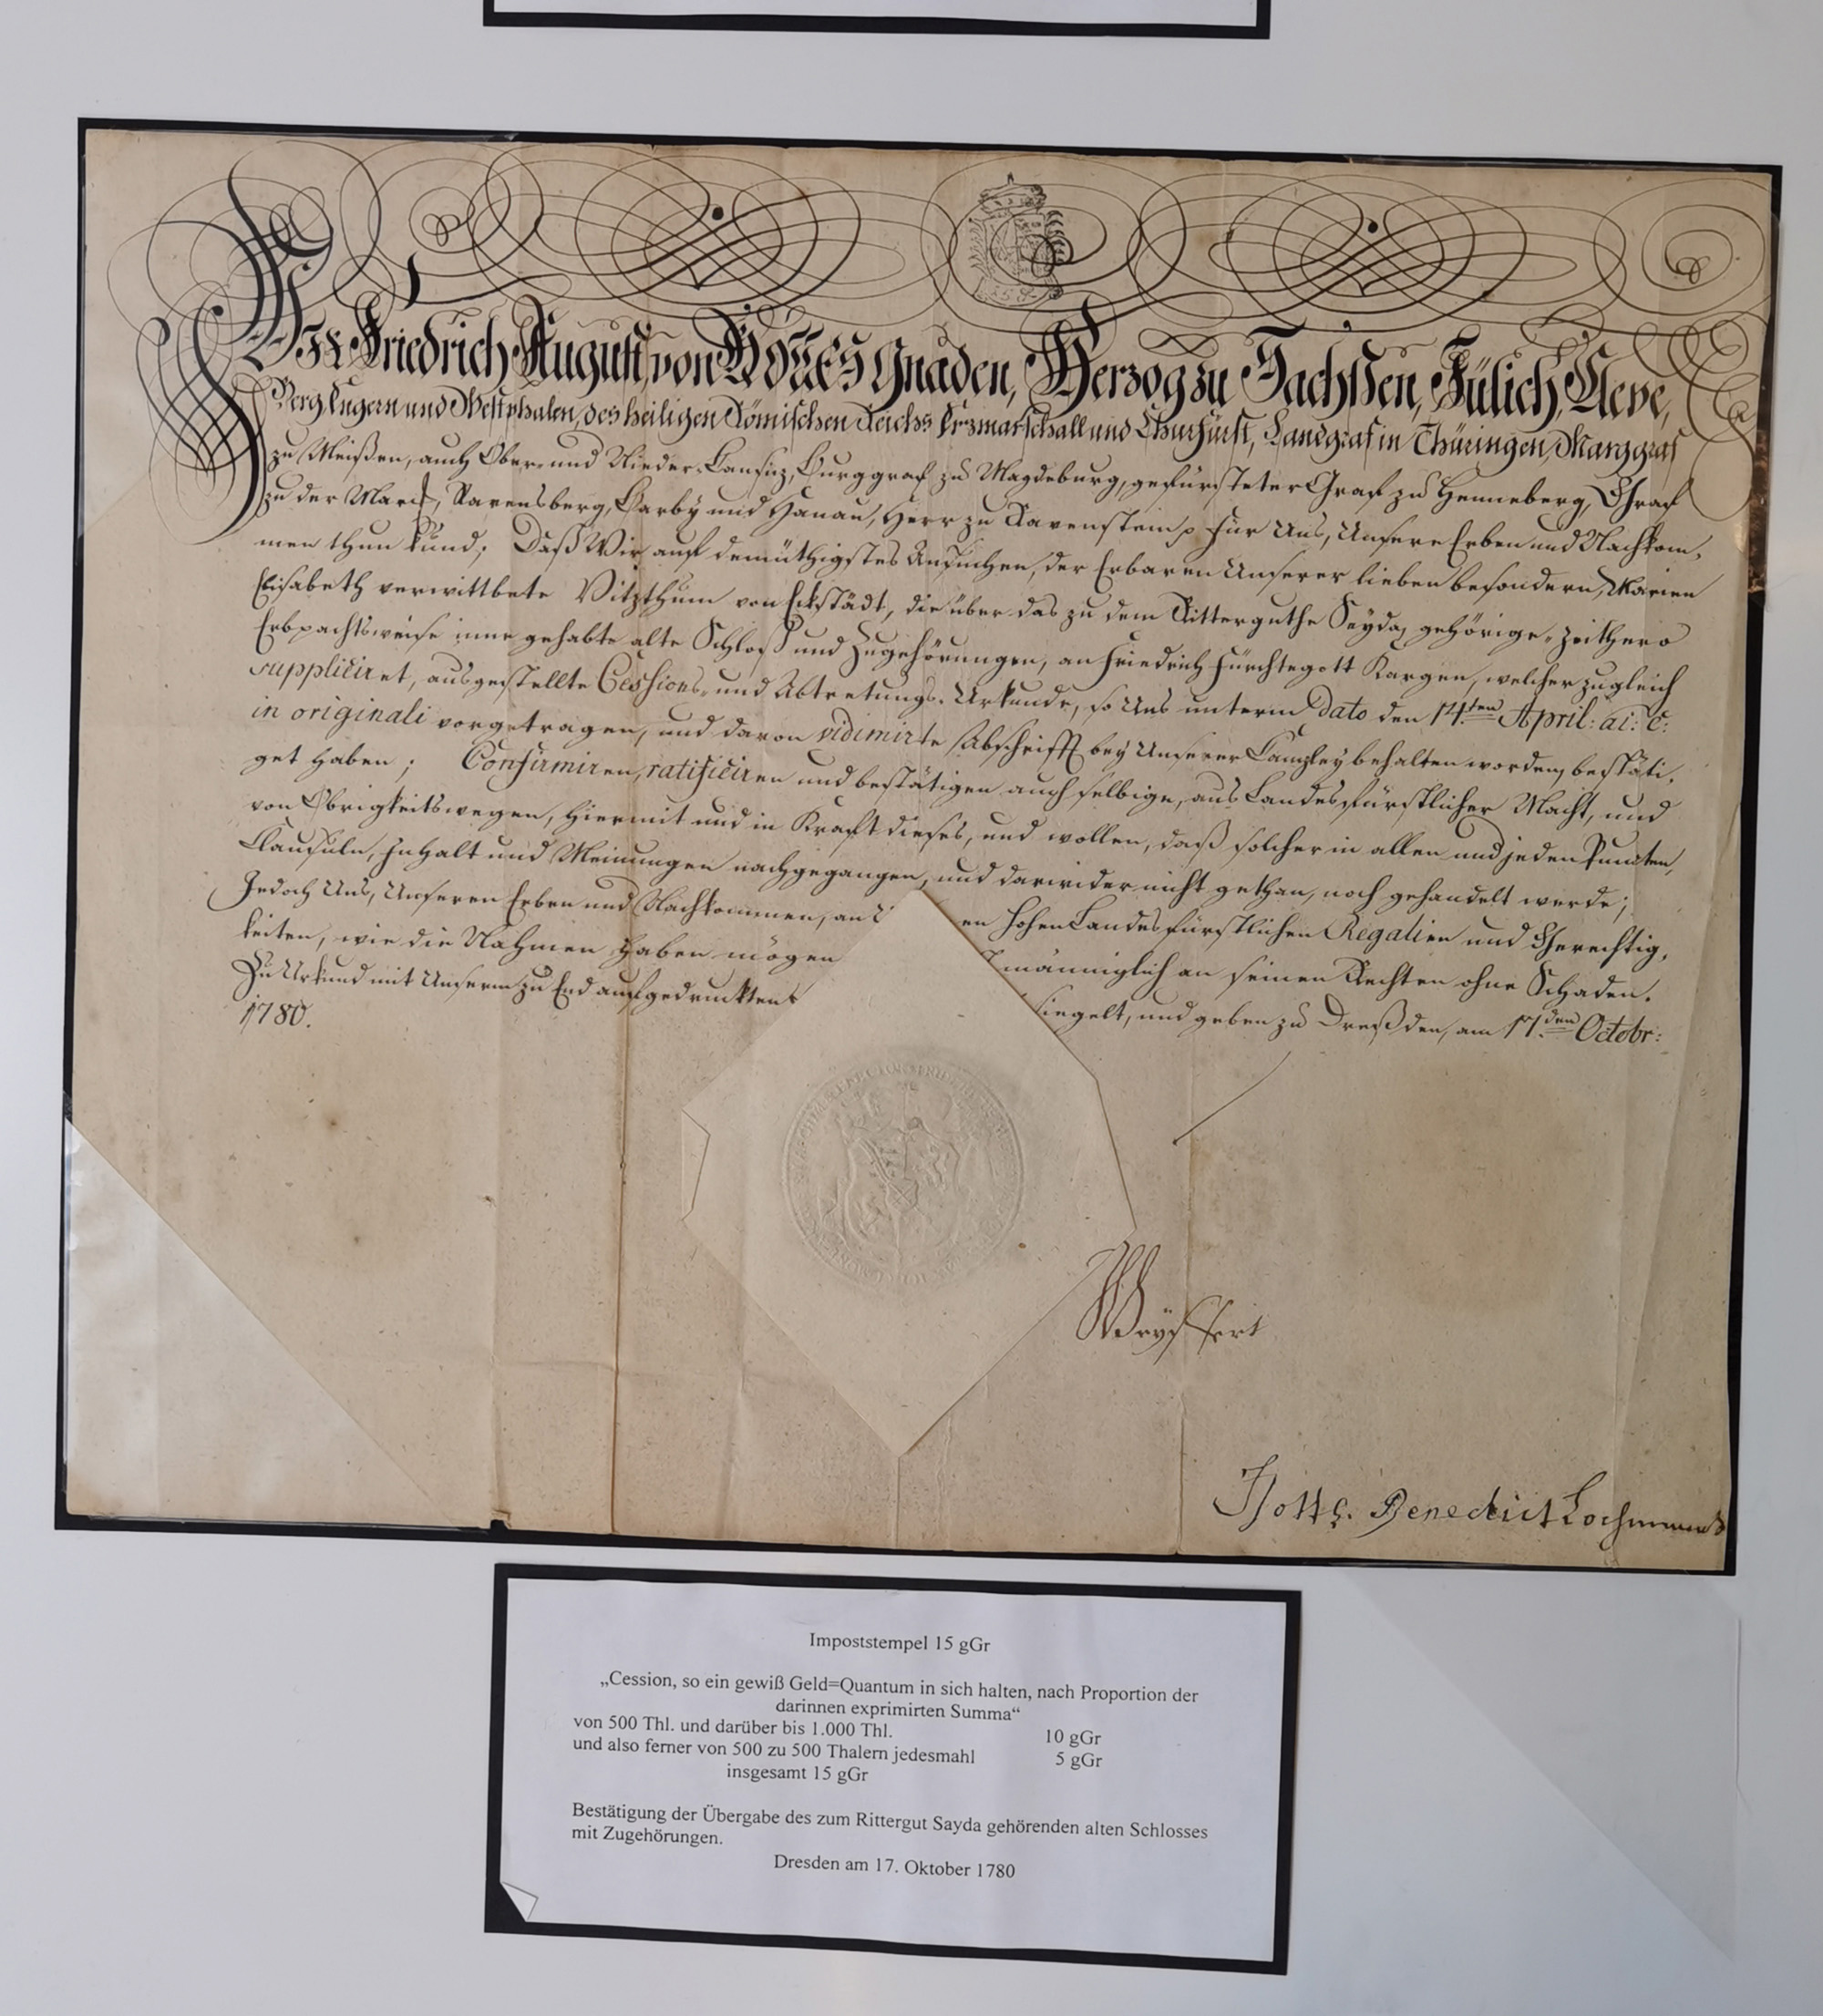 Wir Friedrich August, von GOTTES Gnaden, Herzog zu Sachßen, Jülich, Cleve,
Berg, Engern und Westphalen, des heiligen Römischen Reichs Erzmarschall und Churfürst, Landgraf in Thüringen, Marggraf
zu Meißen, auch Ober- und Nieder-Lausiz, Burggraf zu Magdeburg, gefürsteter Graf zu Henneberg, Graf
zu der Marck, Ravensberg, Barby und Hanau, Herr zu Ravenstein, für Uns, Unsere Erben und Nachkom-
men thun kund; Daß Wir auf demüthigstes Ansuchen, der Erbaren Unserer lieben besondern, Marien
Elisabeth verwittbete Vitzthum von Eckstädt, die über das zu dem Ritterguthe Seyda, gehörige, zeithero
Erbpachtsweise inne gehabte alte Schloß und Zugehörungen, an Friedrich Fürchtegott Kargen, welcher zugleich
suppliciret, ausgestellte Cessions- und Abtretungs-Urkunde, so Uns unterm Dato den 14.ten April: a: c:
in originali vorgetragen, und davon vidimirte Abschrifft bey Unserer Canzley behalten worden, bestäti-
get haben; Confirmiren, ratificiren und bestätigen auch selbige, aus Landesfürstlicher Macht, und
von Obrigkeitswegen, hiermit und in Kraft dieses, und wollen, daß solcher in allen und jeden Puncten,
Clausuln, Inhalt und Meinungen nachgegangen, und darwider nicht gethan, noch gehandelt werde;
Jedoch Uns, Unseren Erben und Nachkommen, an en hohen Landesfürstlichen Regalien und Gerechtig-
keiten, wie die Nahmen haben mögen männiglich an seinen Rechten ohne Schaden.
Zu Urkund mit Unserm zu End aufgedruckten siegelt, und geben zu Dreßden, am 17.den Octobr:
1780.
Gotth. Benedict Lochmann
Impoststempel 15 gGr
„Cession, so ein gewiß Geld=Quantum in sich halten, nach Proportion der
darinnen exprimirten Summa“
von 500 Thl. und darüber bis 1.000 Thl. 10 gGr
und also ferner von 500 zu 500 Thalern jedesmahl 5 gGr
insgesamt 15 gGr
Bestätigung der Übergabe des zum Rittergut Sayda gehörenden alten Schlosses
mit Zugehörungen.
Dresden am 17. Oktober 1780